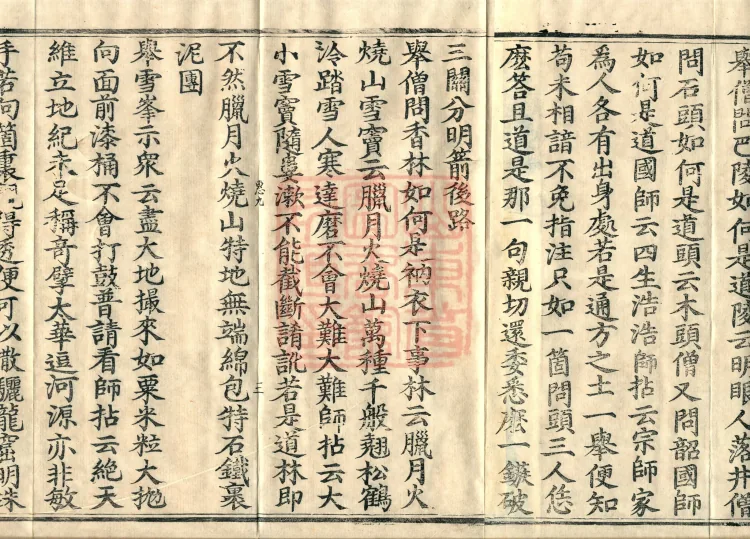 舉僧問巴陵如何是道陵云明眼人落井僧
問石頭如何是道頭云木頭僧又問韶國師
如何是道國師云四生浩浩師拈云宗師家
為人各有出身處若是通方之士一舉便知
苟未相諳不免指注只如一箇問頭三人恁
麼答且道是那一句親切還委悉麼一鏃破
三關分明箭後路
舉僧問香林如何是衲衣下事林云臘月火
燒山雪竇云臘月火燒山萬種千般翹松鶴
冷踏雪人寒達磨不會大難大難師拈云大
小雪竇隨婁漱不能截斷誵訛若是道林即
恩九
三
不然臘月火燒山特地無端綿包特石鐵裏
泥團
舉雪峯示眾云盡大地撮來如粟米粒大抛
向面前漆桶不會打鼓普請看師拈云絕天
維立地紀未足稱奇擘太華逗河源亦非敏
手若向箇裏得透便可以撒驪龍窟明珠